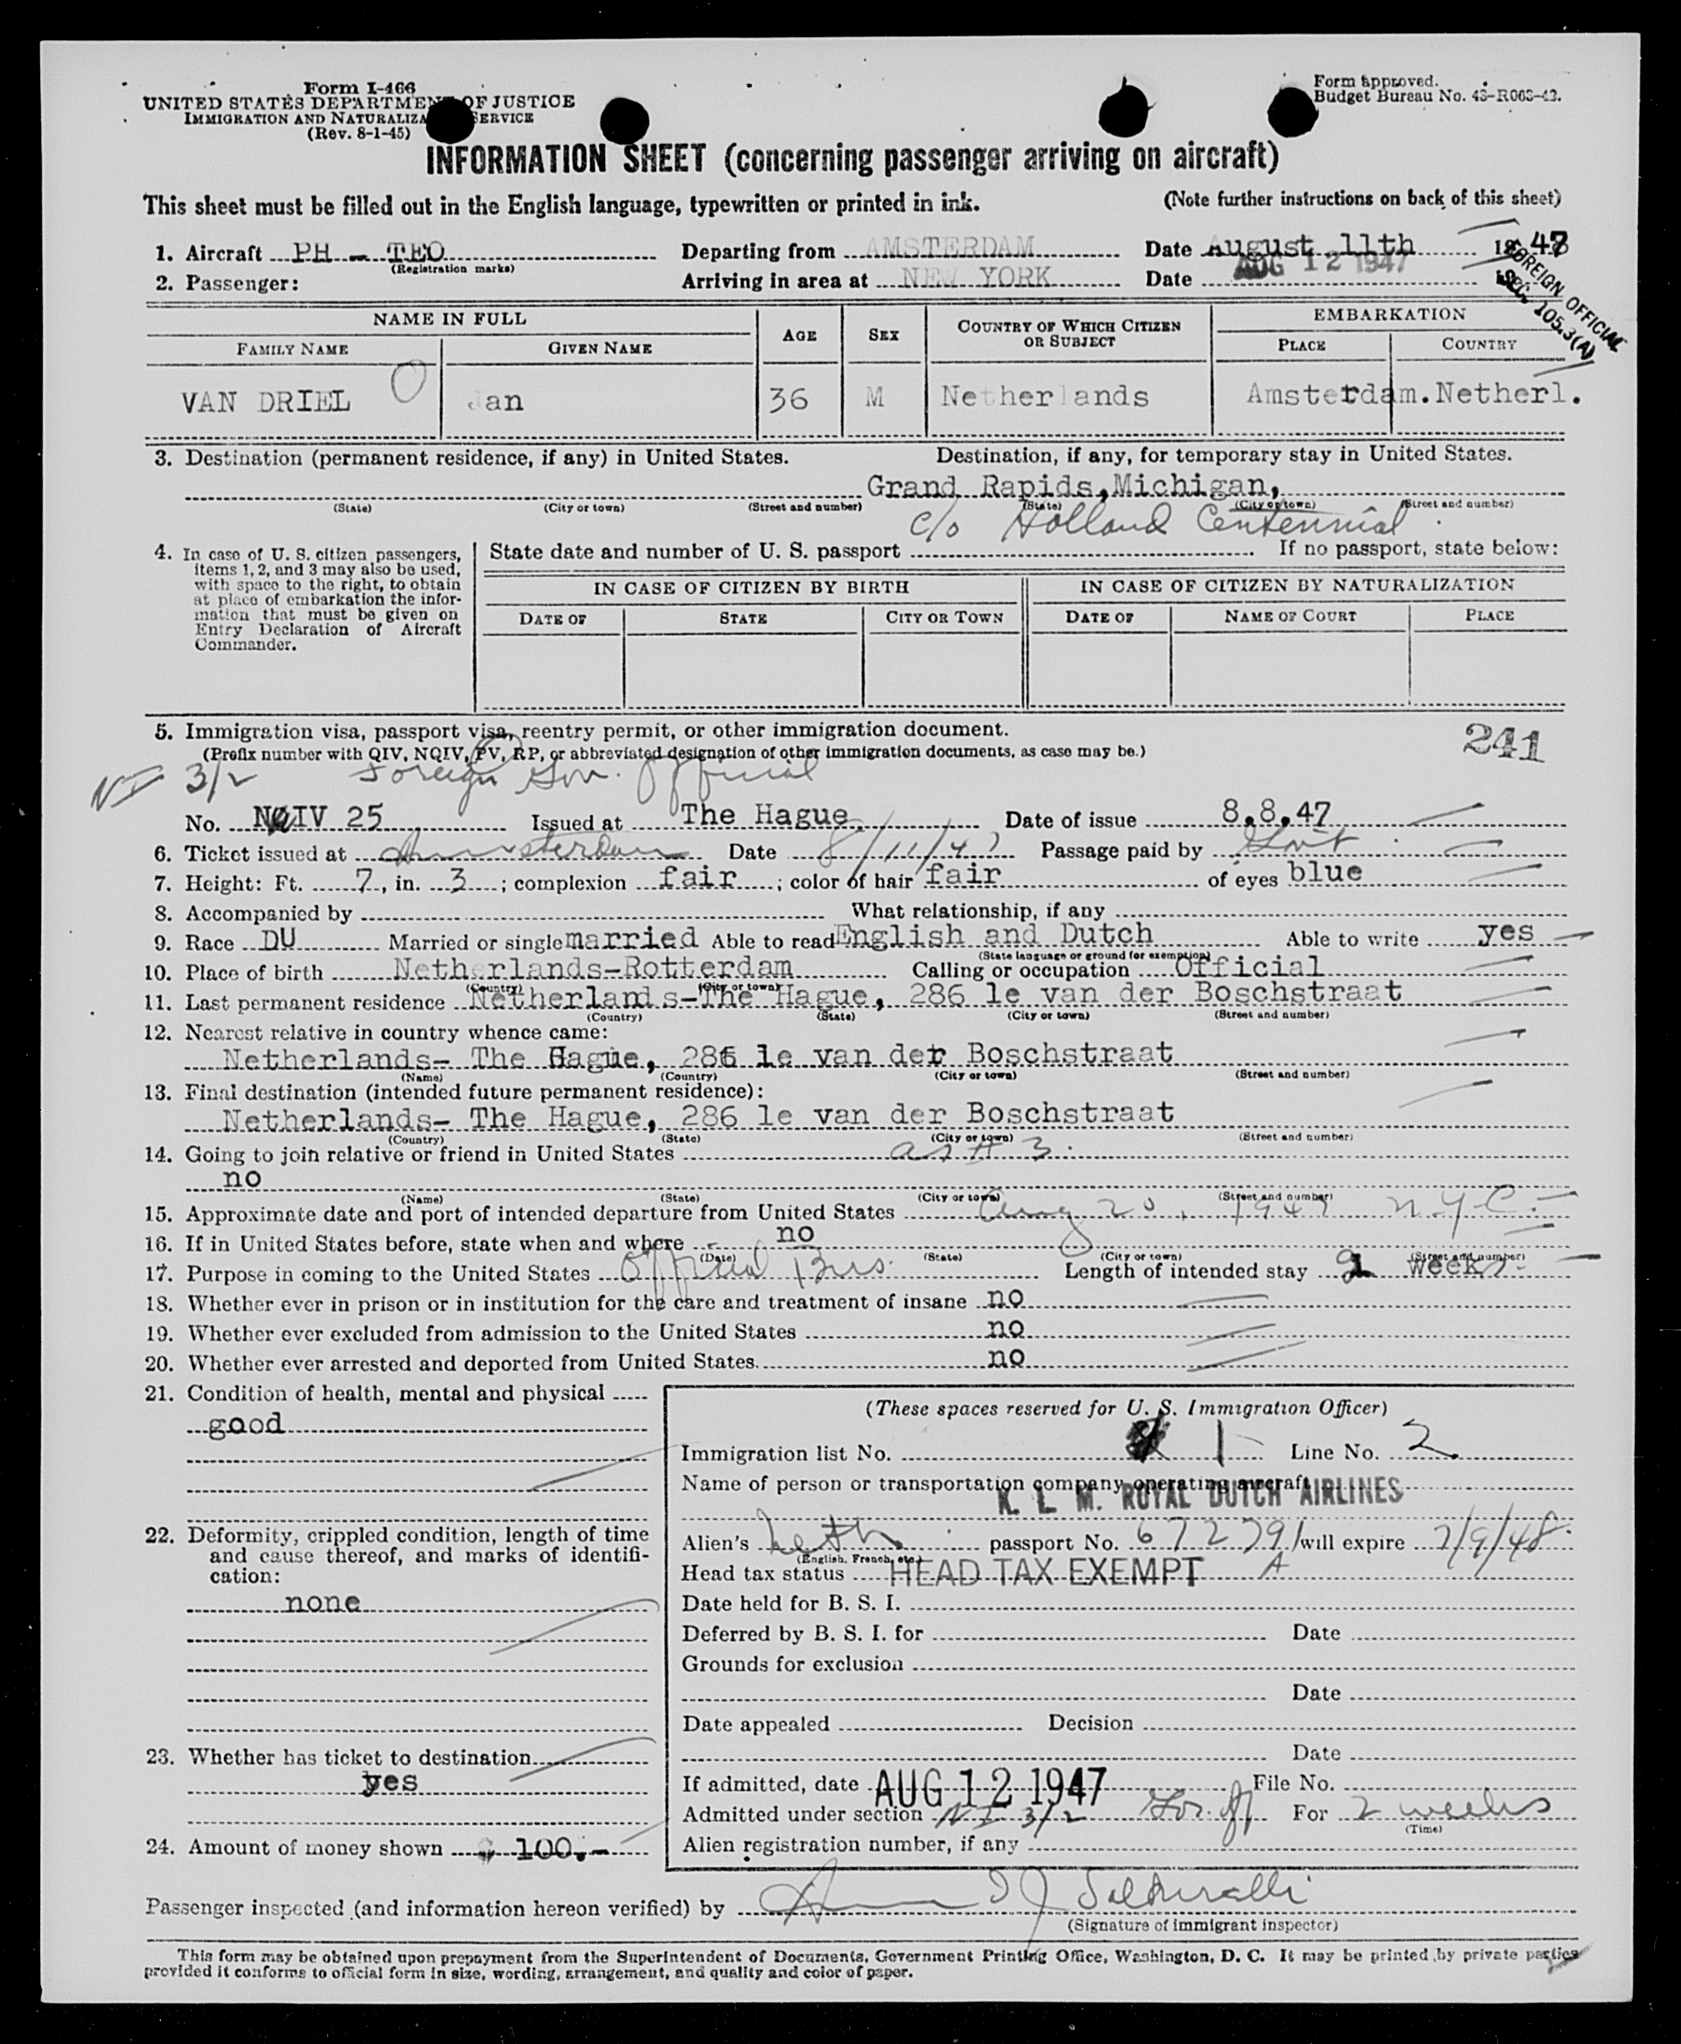 Form I-466
UNITED STATES DEPARTMENT OF JUSTICE
IMMIGRATION AND NATURALIZATION SERVICE
(Rev. 8-1-45)
Form approved.
Budget Bureau No. 43-R063-43.
INFORMATION SHEET (concerning passenger arriving on aircraft)
This sheet must be filled out in the English language, typewritten or printed in ink. (Note further instructions on back of this sheet)
1. Aircraft PH - TEO Departing from AMSTERDAM Date August 11th 47
(Registration marks)
2. Passenger: Arriving in area at NEW YORK Date AUG 12 1947
FOREIGN OFFICIAL
SEC. 105.3(A)
NAME IN FULL AGE SEX COUNTRY OF WHICH CITIZEN OR SUBJECT EMBARKATION
FAMILY NAME GIVEN NAME PLACE COUNTRY
VAN DRIEL Jan 36 M Netherlands Amsterdam.Netherl.
3. Destination (permanent residence, if any) in United States. Destination, if any, for temporary stay in United States.
Grand Rapids, Michigan,
(State) (City or town) (Street and number) (State) (City or town) (Street and number)
c/o Holland Centennial
4. In case of U. S. citizen passengers, items 1, 2, and 3 may also be used, with space to the right, to obtain at place of embarkation the information that must be given on Entry Declaration of Aircraft Commander.
State date and number of U. S. passport If no passport, state below:
IN CASE OF CITIZEN BY BIRTH IN CASE OF CITIZEN BY NATURALIZATION
DATE OF STATE CITY OR TOWN DATE OF NAME OF COURT PLACE
5. Immigration visa, passport visa, reentry permit, or other immigration document.
(Prefix number with QIV, NQIV, PV, RP, or abbreviated designation of other immigration documents, as case may be.)
241
NI 3/2 Foreign Gov. Official
No. NQIV 25 Issued at The Hague Date of issue 8.8.47
6. Ticket issued at Amsterdam Date 8/11/47 Passage paid by Govt
7. Height: Ft. 7, in. 3; complexion fair; color of hair fair of eyes blue
8. Accompanied by What relationship, if any
9. Race DU Married or single married Able to read English and Dutch Able to write yes
(State language or ground for exemption)
10. Place of birth Netherlands-Rotterdam Calling or occupation Official
(Country) (City or town)
11. Last permanent residence Netherlands-The Hague, 286 le van der Boschstraat
(Country) (State) (City or town) (Street and number)
12. Nearest relative in country whence came:
Netherlands- The Hague, 286 le van der Boschstraat
(Name) (Country) (City or town) (Street and number)
13. Final destination (intended future permanent residence):
Netherlands- The Hague, 286 le van der Boschstraat
(Country) (State) (City or town) (Street and number)
14. Going to join relative or friend in United States as # 3.
no
(Name) (State) (City or town) (Street and number)
15. Approximate date and port of intended departure from United States Aug 20, 1947 N.Y.C.
16. If in United States before, state when and where no
(Date) (State) (City or town) (Street and number)
17. Purpose in coming to the United States Official Bus. Length of intended stay 2 weeks
18. Whether ever in prison or in institution for the care and treatment of insane no
19. Whether ever excluded from admission to the United States no
20. Whether ever arrested and deported from United States. no
21. Condition of health, mental and physical
good
22. Deformity, crippled condition, length of time and cause thereof, and marks of identification:
none
23. Whether has ticket to destination
yes
24. Amount of money shown $ 100.-
(These spaces reserved for U. S. Immigration Officer)
Immigration list No. 1 Line No. 2
Name of person or transportation company operating aircraft
K. L. M. ROYAL DUTCH AIRLINES
Alien's Neth. passport No. 67279/A will expire 7/9/48
(English, French, etc.)
Head tax status HEAD TAX EXEMPT
Date held for B. S. I.
Deferred by B. S. I. for Date
Grounds for exclusion
Date
Date appealed Decision
Date
If admitted, date AUG 12 1947 File No.
Admitted under section NI 3/2 For. Of For 2 weeks
(Time)
Alien registration number, if any
Passenger inspected (and information hereon verified) by
(Signature of immigrant inspector)
This form may be obtained upon prepayment from the Superintendent of Documents, Government Printing Office, Washington, D. C. It may be printed by private parties
provided it conforms to official form in size, wording, arrangement, and quality and color of paper.